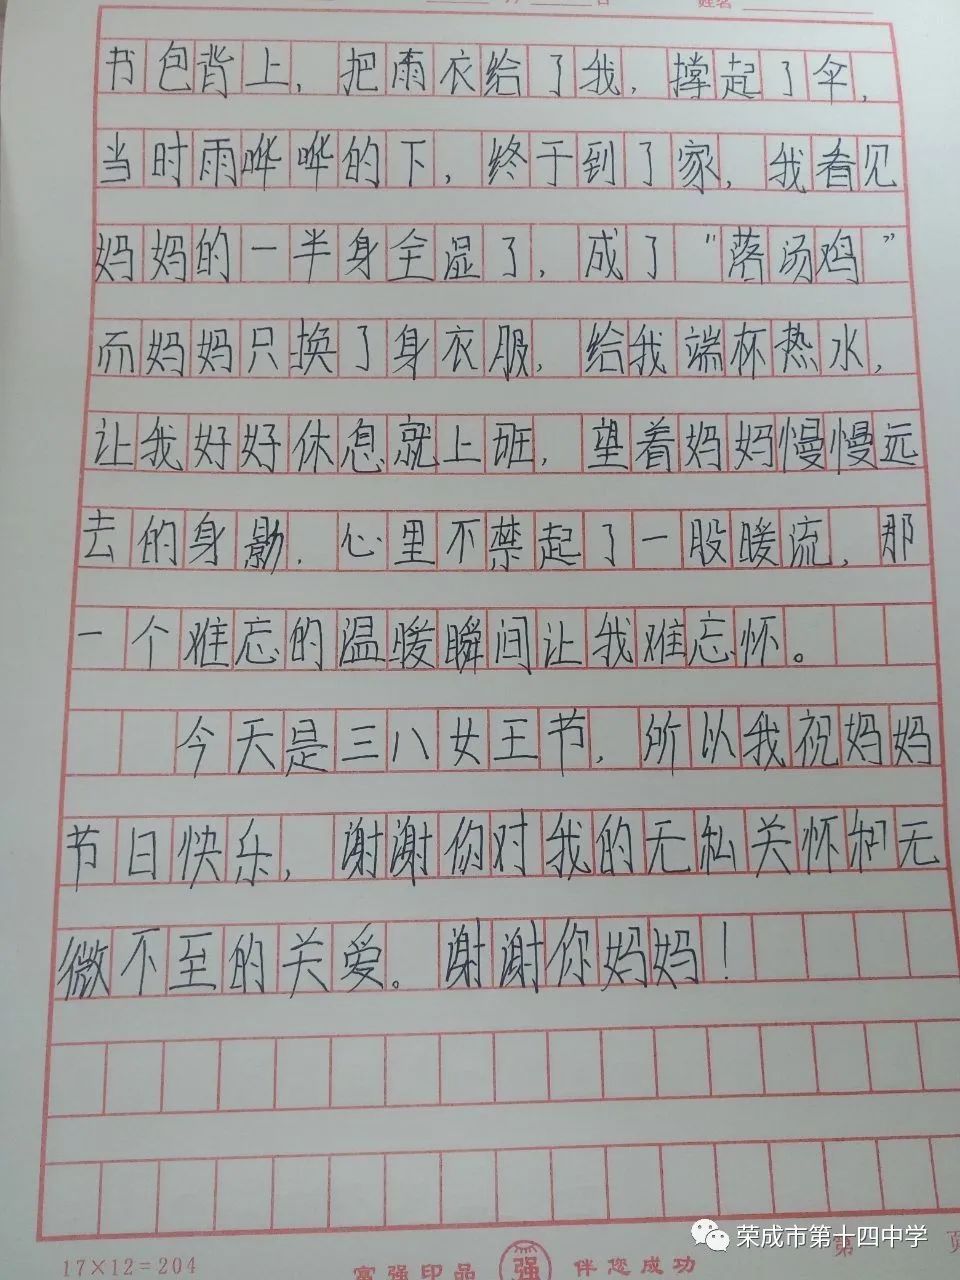 月 日 姓名
书包背上，把雨衣给了我，撑起了伞，
当时雨哗哗的下，终于到了家，我看见
妈妈的一半身全湿了，成了"落汤鸡"
而妈妈只换了身衣服，给我端杯热水，
让我好好休息就上班，望着妈妈慢慢远
去的身影，心里不禁起了一股暖流，那
一个难忘的温暖瞬间让我难忘怀。
今天是三八女王节，所以我祝妈妈
节日快乐，谢谢你对我的无私关怀和无
微不至的关爱。谢谢你妈妈！
17×12=204 富强印品 强 伴您成功 第 页
荣成市第十四中学